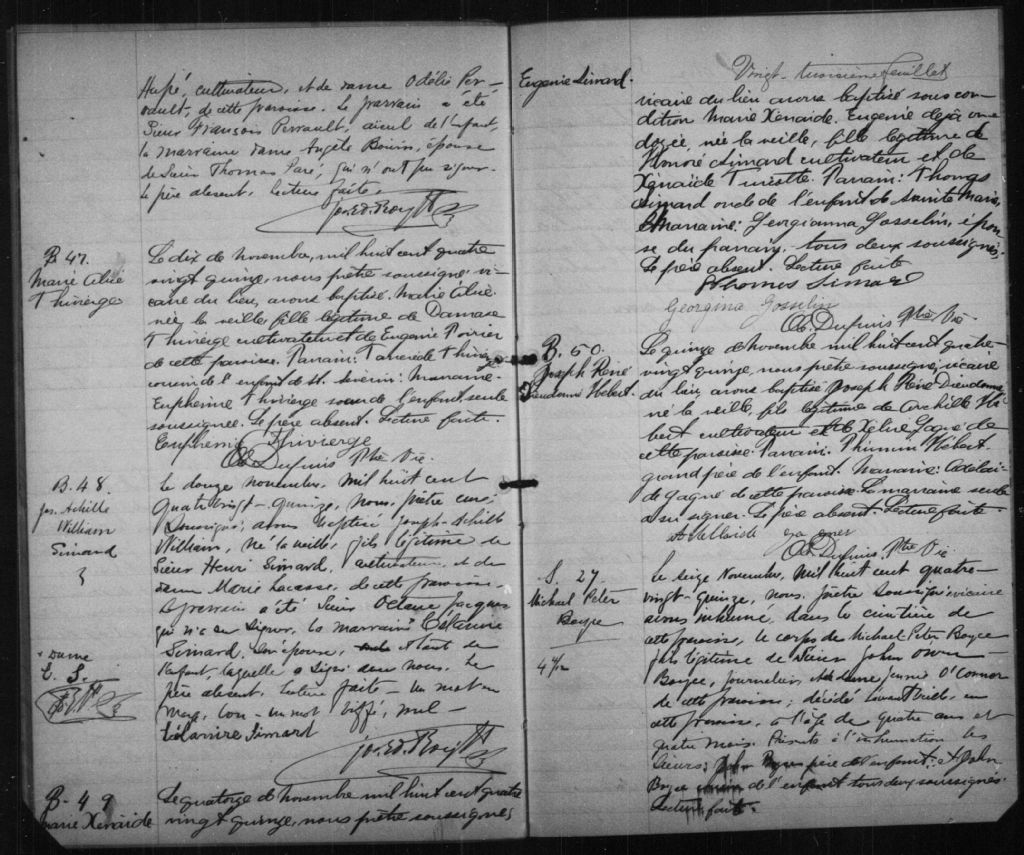 Hupé, cultivateur, et de dame Odélie Per-
rault, de cette paroisse. Le parrain a été
Sieur François Perrault, aieul de l'enfant,
la marraine dame Angèle Bouin, épouse
de Sieur Thomas Paré, qui n'ont pu signer.
Le père absent. Lecture faite.
B 47.
Marie Alice
Thivierge
Le dix de novembre, mil huit cent quatre
vingt quinze, nous prêtre soussigné, vi-
caire du lieu, avons baptisé Marie Alice
née la veille fille légitime de Damase
Thivierge cultivateur et de Eugenie Poirier
de cette paroisse. Parrain: Tancrede Thivierge
cousin de l'enfant de St. Séverin: Marraine-
Euphemie Thivierge soeur de l'enfant, seule
soussignée. Le père absent. Lecture faite.
Euphemie Thivierge
Dupuis Ptre Vic.
B. 48.
Jos. Achille
William
Simard
Le douze novembre, mil huit cent
quatre vingt-quinze, nous, prêtre curé
soussigné, avons baptisé Joseph-Achille
William, né la veille, fils légitime de
Sieur Henri Simard, cultivateur, et de
dame Marie Lacasse, de cette paroisse.
Le parrain a été Sieur Octave Jacques
qui n'a su signer, la marraine Célanire
Simard, son épouse, et tante de
l'enfant, laquelle a signé avec nous. Le
père absent. Lecture faite - un mot en
marge, bon - un mot biffé, nul -
Célanire Simard
+ Dame
C. S.
B - 49
Marie Xénaide
Le quatorze de novembre mil huit cent quatre
vingt quinze, nous prêtre soussigné,
Eugenie Simard.
Vingt-troisième feuillet
vicaire du lieu avons baptisé sous con-
dition Marie Xénaide Eugenie déjà on-
doyée, née la veille, fille légitime de
Honoré Simard cultivateur et de
Xénaide Turcotte. Parrain: Thomas
Simard oncle de l'enfant de Sainte Marie,
Marraine: Georgianna Gosselin, épou-
se du parrain, tous deux soussignés.
Le père absent. Lecture faite
Thomas Simard
Georgina Gosselin
Dupuis Ptre Vic
B. 50.
Joseph René
Dieudonné Hébert.
Le quinze de novembre mil huit cent quatre-
vingt quinze, nous prêtre soussigné, vicaire
du lieu, avons baptisé Joseph René Dieudonné
né la veille, fils légitime de Archille Hé-
bert cultivateur et de Xeline Gagné de
cette paroisse. Parrain: Hébert
grand père de l'enfant. Marraine: Adelai-
de Gagné de cette paroisse. La marraine seule
a su signer. Le père absent. Lecture faite.
Adellaide gagner
Dupuis Ptre Vic
S. 27
Michael Peter
Boyce
Le seize Novembre, mil huit cent quatre-
vingt-quinze, nous, prêtre soussigné vicaire
avons inhumé, dans le cimetière de
cette paroisse, le corps de Michael Peter Boyce
fils légitime de Sieur John Owen
Boyce, journalier, et de dame Jennie O'Connor
de cette paroisse, décédé l'avant veille, en
cette paroisse, à l'âge de quatre ans et
quatre mois. Présents à l'inhumation les
Sieurs: père de l'enfant: et John
Boyce de l'enfant tous deux soussignés
Lecture faite.